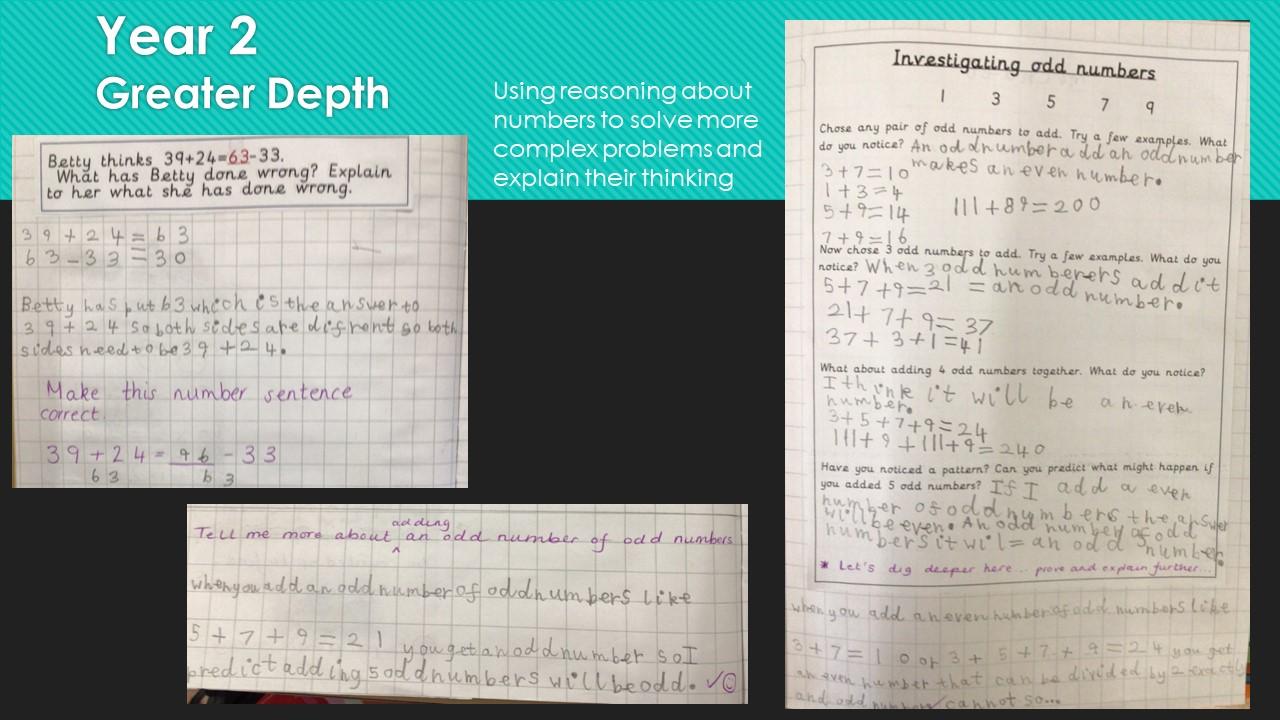 Year 2
Greater Depth
Using reasoning about
numbers to solve more
complex problems and
explain their thinking
Betty thinks 39+24=63-33.
What has Betty done wrong? Explain
to her what she has done wrong.
39+24=63
63-33=30
Betty has put 63 which is the answer to
39+24 so both sides are difrent so both
sides need to be 39+24.
Make this number sentence
correct.
39+24=96-33
63 63
adding
Tell me more about ^ an odd number of odd numbers
when you add an odd number of odd numbers like
5+7+9=21 you get an odd number so I
predict adding 5 odd numbers will be odd. ✓☺
Investigating odd numbers
1 3 5 7 9
Chose any pair of odd numbers to add. Try a few examples. What
do you notice? An odd number add an odd number
3+7=10 makes an even number.
1+3=4
5+9=14 111+89=200
7+9=16
Now chose 3 odd numbers to add. Try a few examples. What do you
notice? When 3 odd numberers add it
5+7+9=21 = an odd number.
21+7+9=37
37+3+1=41
What about adding 4 odd numbers together. What do you notice?
I think it will be an even
number.
3+5+7+9=24
111+9+111+9=240
Have you noticed a pattern? Can you predict what might happen if
you added 5 odd numbers? If I add a even
number of odd numbers the answer
will be even. An odd number of odd
numbers it wil = an odd number.
* Let's dig deeper here... prove and explain further...
when you add an even number of odd numbers like
3+7=10 or 3+5+7+9=24 you get
an even number that can be divided by 2 exactly
and odd numbers cannot so...